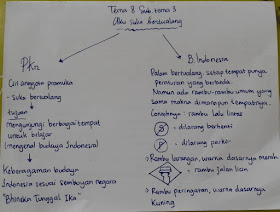 Tema 8 Sub tema 3
Aku suka bertualang
PKn
Ciri anggota pramuka
- Suka bertualang
tujuan
mengunjungi berbagai tempat
untuk belajar
mengenal budaya Indonesia
Keberagaman budaya
Indonesia sesuai semboyan negara
"Bhineka Tunggal Ika"
B. Indonesia
Dalam bertualang, setiap tempat punya
peraturan yang berbeda.
Namun ada rambu-rambu umum yang
sama makna dimanapun tempatnya.
Contohnya: rambu lalu lintas
S dilarang berhenti
P dilarang parkir
Rambu larangan, warna dasarnya merah
rambu jalan licin
Rambu peringatan, warna dasarnya
Kuning